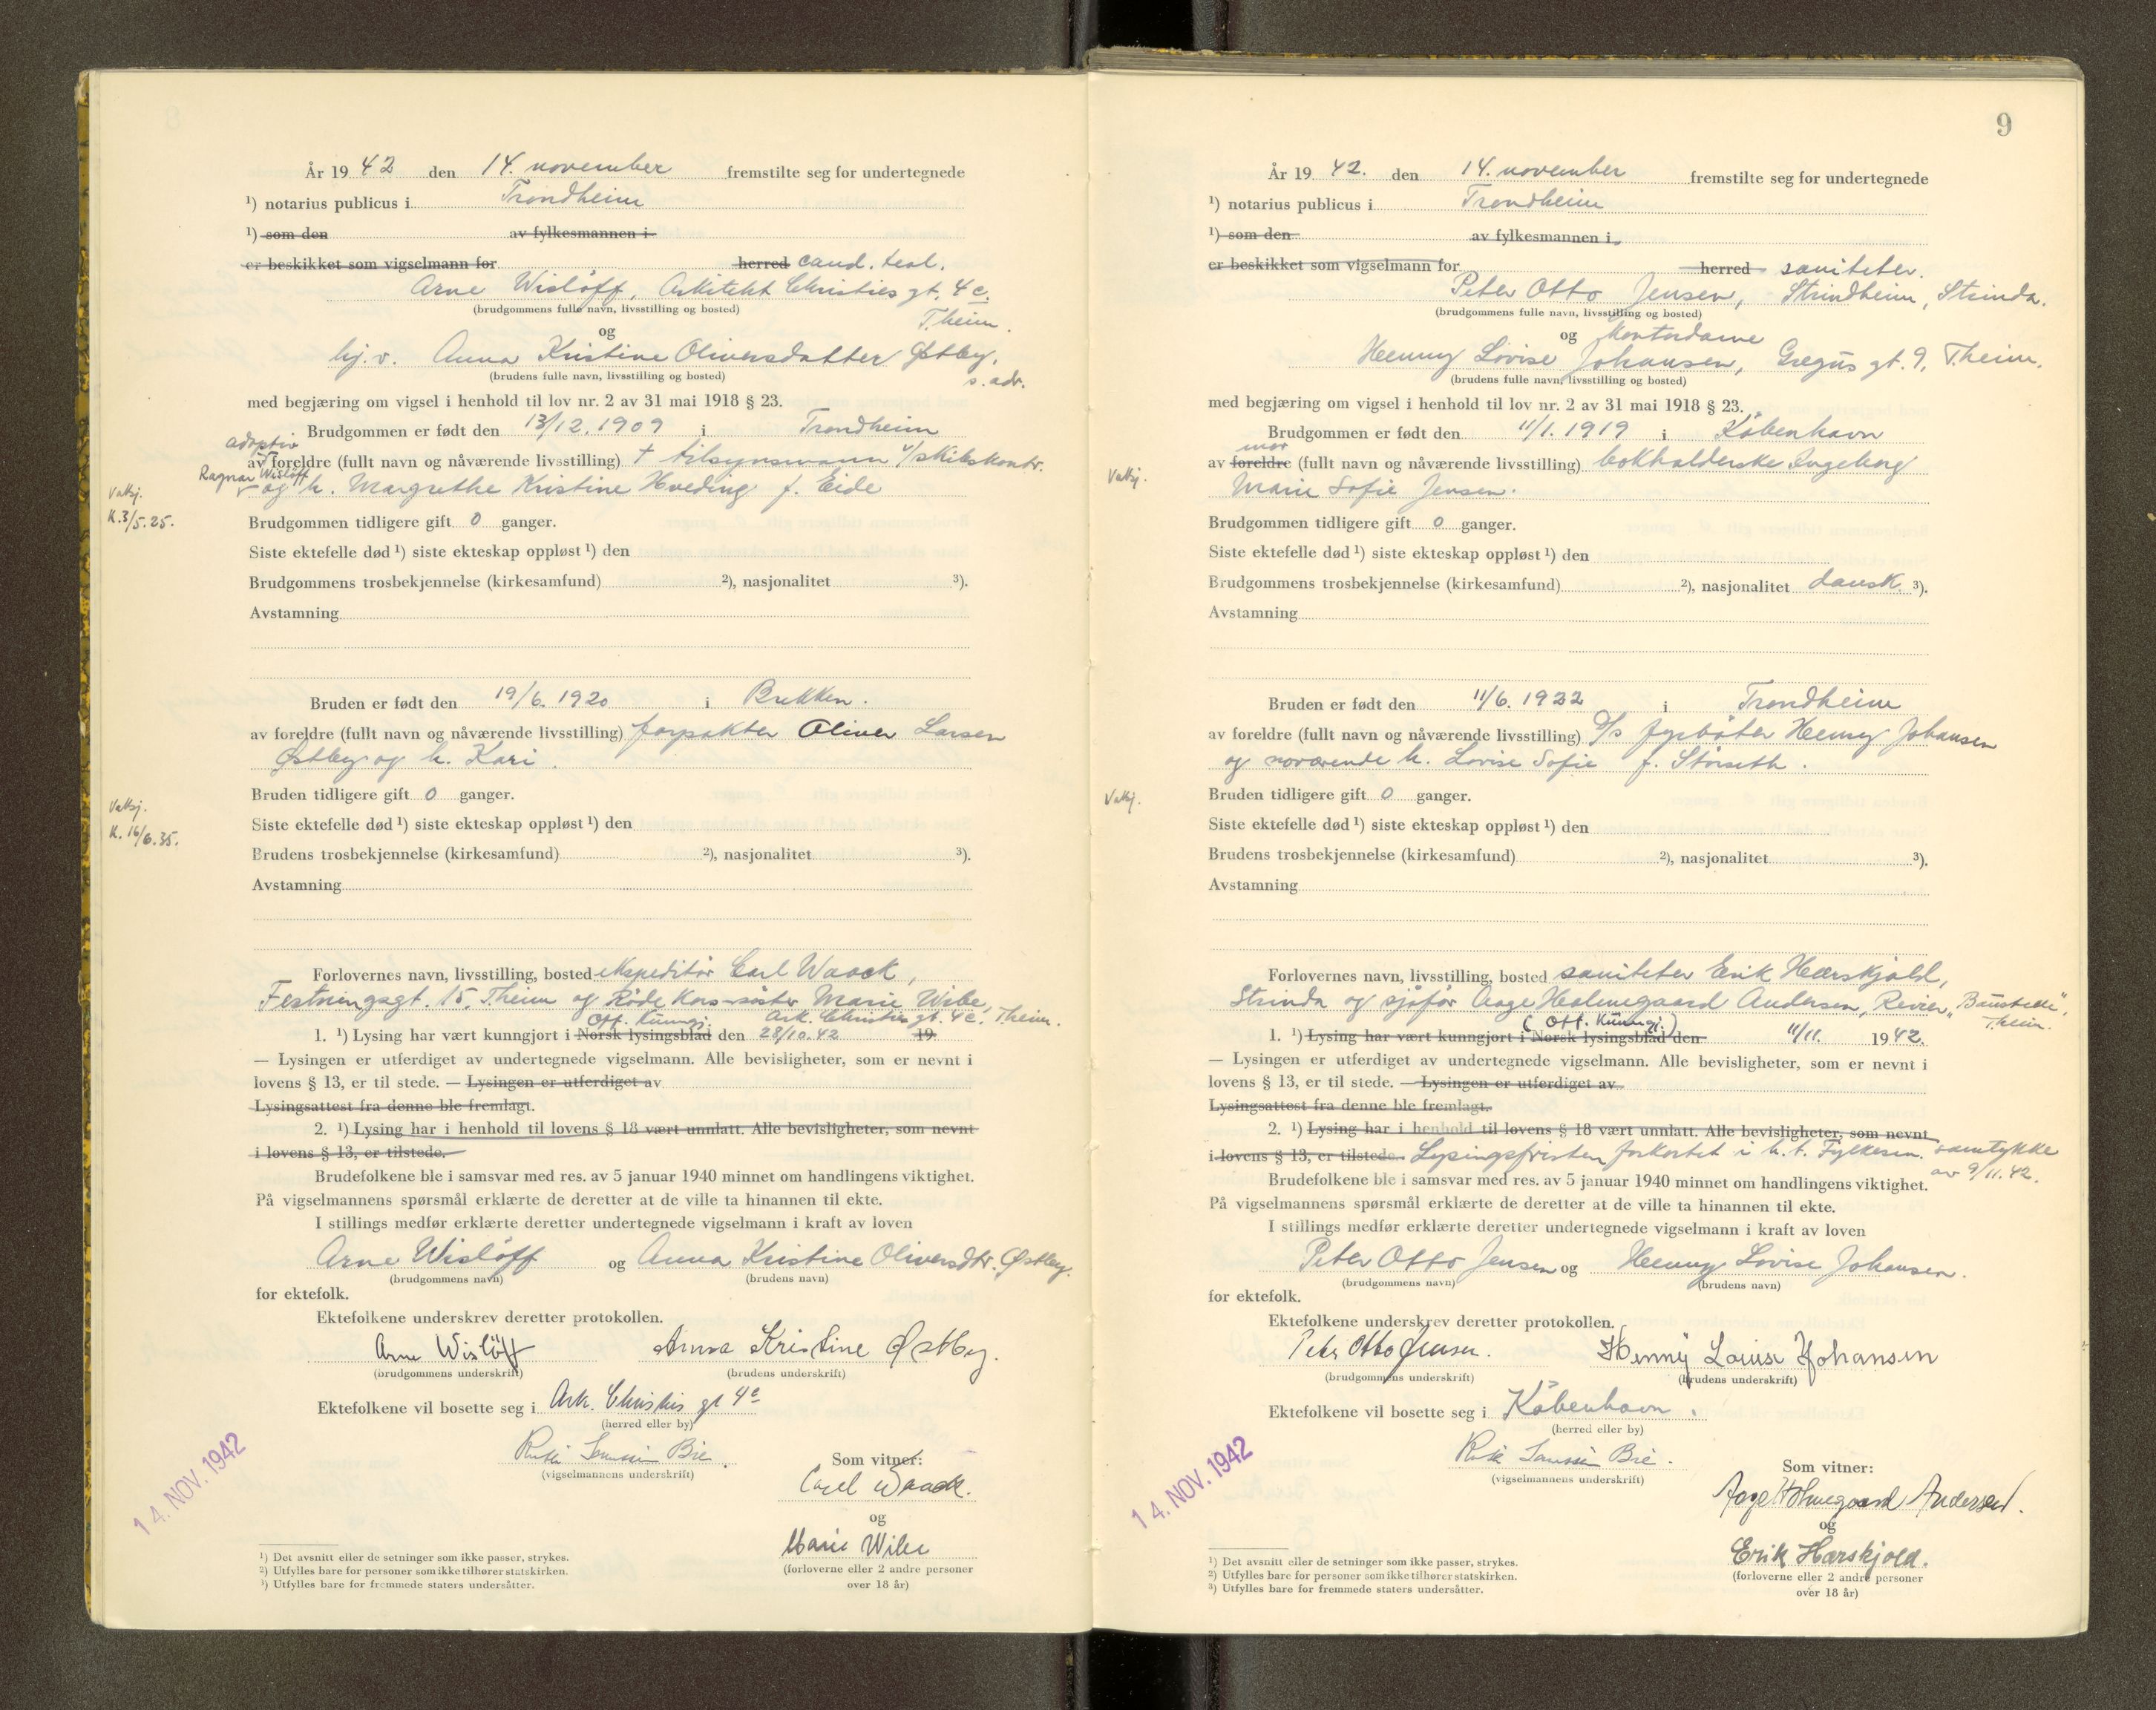 År 19 42 den 14. november fremstilte seg for undertegnede
¹) notarius publicus i Trondheim
¹) som den av fylkesmannen i
er beskikket som vigselmann for herred cand. teol.
Arne Wislöff, Arkitekt Christies gt. 4 c.
(brudgommens fulle navn, livsstilling og bosted)
T.heim.
og
hj.v. Anna Kristine Oliversdatter Østby,
(brudens fulle navn, livsstilling og bosted)
s. adr.
med begjæring om vigsel i henhold til lov nr. 2 av 31 mai 1918 § 23.
Brudgommen er født den 13/12. 1909 i Trondheim
adoptiv
av foreldre (fullt navn og nåværende livsstilling) † tilsynsmann v/skibskontr.
Ragnar Wislöff
og h. Margrethe Kristine Hveding f. Eide
Vaksj.
K. 3/5. 25.
Brudgommen tidligere gift 0 ganger.
Siste ektefelle død ¹) siste ekteskap oppløst ¹) den
Brudgommens trosbekjennelse (kirkesamfund) ²), nasjonalitet ³).
Avstamning
Bruden er født den 19/6. 1920 i Brekken.
av foreldre (fullt navn og nåværende livsstilling) forpakter Oliver Larsen
Østby og h. Kari.
Bruden tidligere gift 0 ganger.
Vaksj.
K. 16/6.35.
Siste ektefelle død ¹) siste ekteskap oppløst ¹) den
Brudens trosbekjennelse (kirkesamfund) ²), nasjonalitet ³).
Avstamning
Forlovernes navn, livsstilling, bosted ekspeditør Carl Waack,
Festningsgt. 15, T.heim og Røde Kors-søster Marie Wibe,
Off. Kunngj. Ark. Christies gt. 4 c. T.heim.
1. ¹) Lysing har vært kunngjort i Norsk lysingsblad den 28/10. 42 19
— Lysingen er utferdiget av undertegnede vigselmann. Alle bevisligheter, som er nevnt i
lovens § 13, er til stede. — Lysingen er utferdiget av
Lysingsattest fra denne ble fremlagt.
2. ¹) Lysing har i henhold til lovens § 18 vært unnlatt. Alle bevisligheter, som nevnt
i lovens § 13, er tilstede.
Brudefolkene ble i samsvar med res. av 5 januar 1940 minnet om handlingens viktighet.
På vigselmannens spørsmål erklærte de deretter at de ville ta hinannen til ekte.
I stillings medfør erklærte deretter undertegnede vigselmann i kraft av loven
Arne Wislöff og Anna Kristine Oliversdtr. Østby.
(brudgommens navn) (brudens navn)
for ektefolk.
Ektefolkene underskrev deretter protokollen.
Arne Wislöff Anna Kristine Østby.
(brudgommens underskrift) (brudens underskrift)
Ektefolkene vil bosette seg i Ark. Christies gt 4c
(herred eller by)
(vigselmannens underskrift)
Som vitner:
Carl Waack.
og
Marie Wibe
(forloverne eller 2 andre personer
over 18 år)
14. NOV. 1942
¹) Det avsnitt eller de setninger som ikke passer, strykes.
²) Utfylles bare for personer som ikke tilhører statskirken.
³) Utfylles bare for fremmede staters undersåtter.
9
År 19 42. den 14. november fremstilte seg for undertegnede
¹) notarius publicus i Trondheim
¹) som den av fylkesmannen i
er beskikket som vigselmann for herred saniteter.
Peter Otto Jensen, Strindheim, Strinda.
(brudgommens fulle navn, livsstilling og bosted)
og kontordame
Henny Lovise Johansen, Gregus gt. 9, T.heim.
(brudens fulle navn, livsstilling og bosted)
med begjæring om vigsel i henhold til lov nr. 2 av 31 mai 1918 § 23.
Brudgommen er født den 11/1. 1919 i København
mor
av foreldre (fullt navn og nåværende livsstilling) bokholderske Ingeborg
Marie Sofie Jensen.
Vaksj.
Brudgommen tidligere gift 0 ganger.
Siste ektefelle død ¹) siste ekteskap oppløst ¹) den
Brudgommens trosbekjennelse (kirkesamfund) ²), nasjonalitet dansk ³).
Avstamning
Bruden er født den 11/6. 1922 i Trondheim
av foreldre (fullt navn og nåværende livsstilling) D/s fyrbøter Henny Johansen
og noværende h. Lovise Sofie f. Störseth.
Vaksj.
Bruden tidligere gift 0 ganger.
Siste ektefelle død ¹) siste ekteskap oppløst ¹) den
Brudens trosbekjennelse (kirkesamfund) ²), nasjonalitet ³).
Avstamning
Forlovernes navn, livsstilling, bosted saniteter Erik Hærskjold,
Strinda og sjåfør Aage Holmegaard Andersen, Revier „Bunstelle",
T.heim.
( Off. Kunngj.)
1. ¹) Lysing har vært kunngjort i Norsk lysingsblad den 11/11. 19 42.
— Lysingen er utferdiget av undertegnede vigselmann. Alle bevisligheter, som er nevnt i
lovens § 13, er til stede. — Lysingen er utferdiget av
Lysingsattest fra denne ble fremlagt.
2. ¹) Lysing har i henhold til lovens § 18 vært unnlatt. Alle bevisligheter, som nevnt
i lovens § 13, er tilstede. Lysingsfristen forkortet i h. t. Fylkesm. samtykke
av 9/11. 42.
Brudefolkene ble i samsvar med res. av 5 januar 1940 minnet om handlingens viktighet.
På vigselmannens spørsmål erklærte de deretter at de ville ta hinannen til ekte.
I stillings medfør erklærte deretter undertegnede vigselmann i kraft av loven
Peter Otto Jensen og Henny Lovise Johansen.
(brudgommens navn) (brudens navn)
for ektefolk.
Ektefolkene underskrev deretter protokollen.
Peter Otto Jensen. Henny Louise Johansen
(brudgommens underskrift) (brudens underskrift)
Ektefolkene vil bosette seg i København.
(herred eller by)
(vigselmannens underskrift)
Som vitner:
Aage Holmegaard Andersen.
og
Erik Hærskjold.
(forloverne eller 2 andre personer
over 18 år)
14. NOV. 1942
¹) Det avsnitt eller de setninger som ikke passer, strykes.
²) Utfylles bare for personer som ikke tilhører statskirken.
³) Utfylles bare for fremmede staters undersåtter.